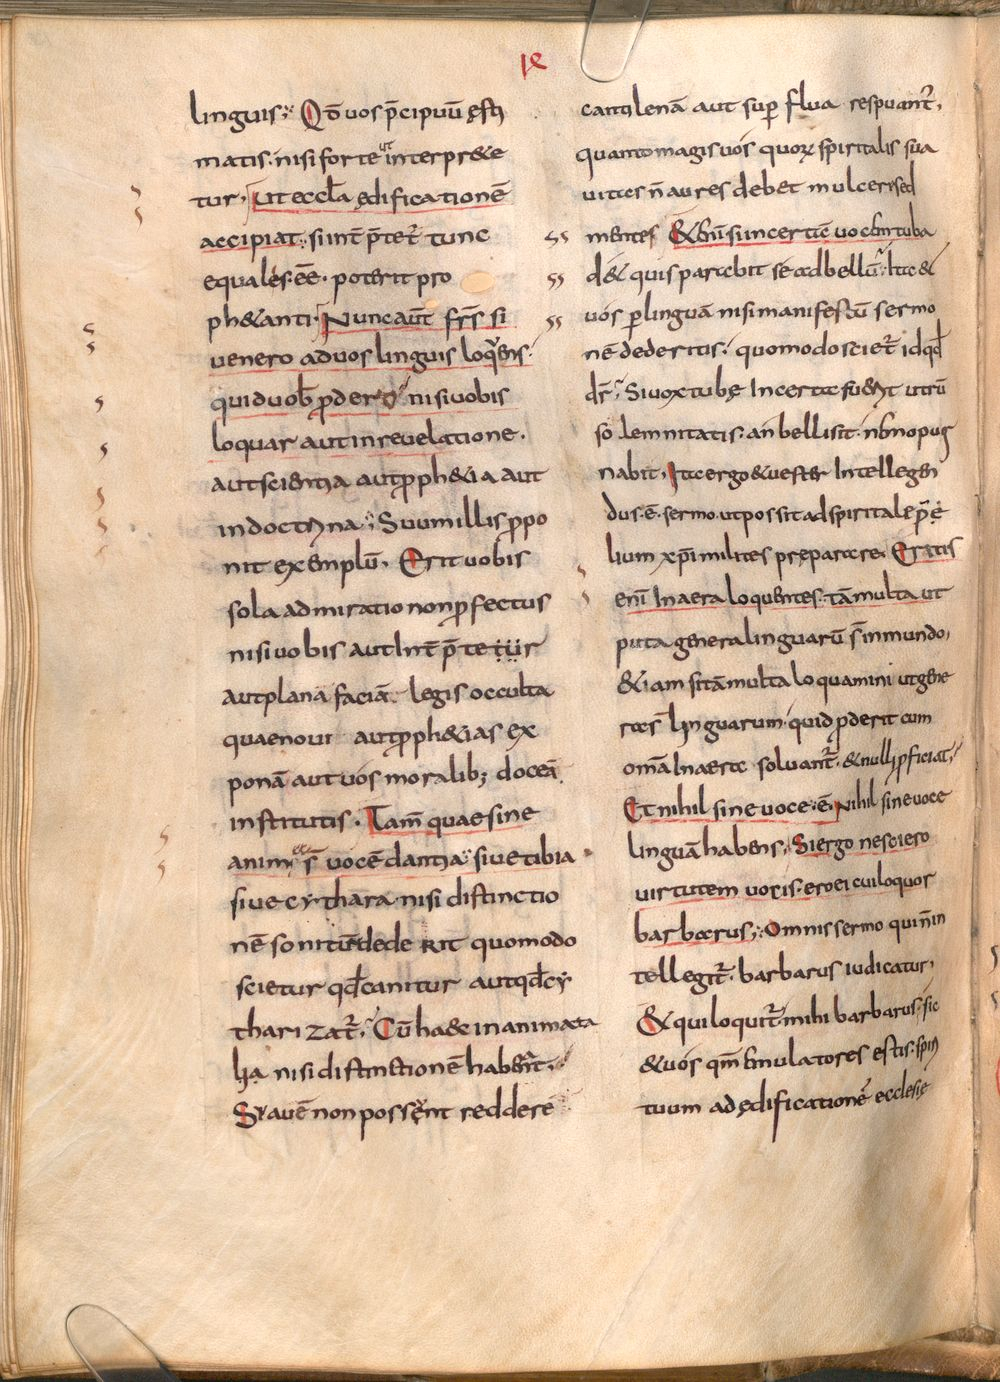 IX
linguis; Qđ vos p̄cipuū ęsti
matis. nisi forte ut interpr&e
tur. Ut eccl̄a ędificationē
accipiat. si int̄ p̄tet̄ tunc
equales. eē. poterit pro
ph&anti. Nunc aut̄ frs̄ si
venero ad uos linguis loquens.
quid uob̄ pder nisi uobis
loquar aut in reuelatione.
aut scientia aut pph&ia aut
in doctrina; Suum illis ppo
nit exemplū. Erit uobis
sola admiratio non pfectus
nisi uobis aut
aut planā faciā legis occulta
quae noui aut pph&ias ex
ponā aut uos moralib; doceā
institutis. Tam̄ quae sine
anima s̄ vocē dantia siue tibia
siue cythara nisi distinctio
nē sonitū dederit quomodo
scietur qđ canitur aut qđ cy
tharizat̄; Cū hęc inanimata
lia nisi distinctionē habent̄;
Suauē non possent reddere
cantilenā aut sup flua respuant̄,
quanto magis uos quoꝝ spiritalis sua
uitas n̄ aures debet mulceri sed
mentes & eni si incertā uocē tuba
d& quis parabit se ad bellū; Ita &
uos p linguā nisi manifestū sermo
nē dederitis. quomodo sciet̄ id qđ
dr̄; Si uox tubę Incerta fuerit utrū
solemnitatis. an belli sit. nemo pug
nabit. Ita ergo & uester Intellegen
dus. ē. sermo. ut possit ad spiritale pręę
lium xp̄i milites prępartare. Eritis
enī In aera loquentes. tā multa ut
puta genera linguarū s̄ in mundo,
& iam si tā multa loquamini ut gene
ra s̄ linguarum. quid pderit cum
omā In aere soluant̄. & nulli pficiat;
Et nihil sine uoce. ē. Nihil sine uoce
linguā habens; Si ergo nesciero
uirtutem uocis. ero ei cui loquor
barbarus; Omnis sermo qui n̄ in
tellegit̄. barbarus iudicatur,
& qui loquit̄. mihi barbarus; sic
& uos qm̄ emulatores estis. spiri
tuum ad ędificationē ecclesię